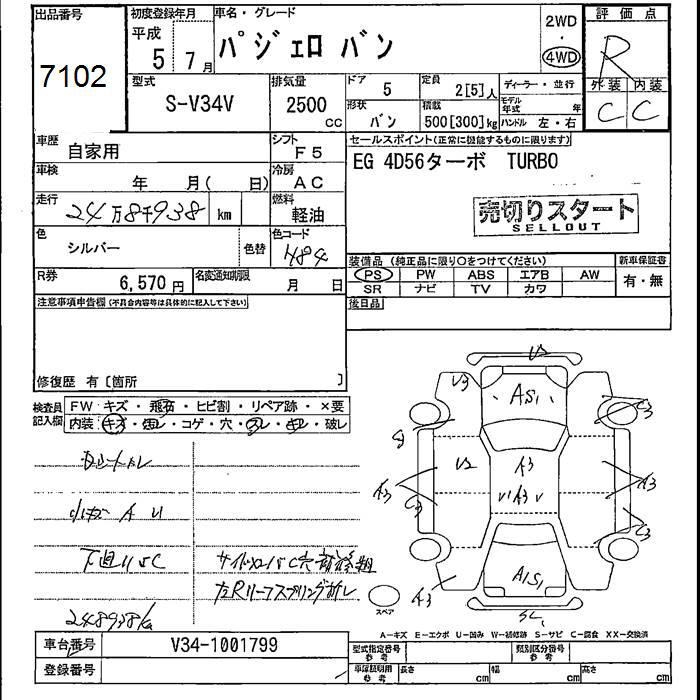 出品番号
7102
初度登録年月
平成
5年7月
車名・グレード
パジェロ バン
2WD
4WD
評価点
R
外装 内装
C C
型式
S-V34V
排気量
2500
CC
ドア
5
定員
2[5]人
ディーラー・並行
形状
バン
積載
500[300]kg
モデル年式 年
ハンドル 左・右
車歴
自家用
シフト
F5
セールスポイント(正常に機能するものに限ります)
EG 4D56ターボ TURBO
車検
年 月( 日)
冷房
AC
走行
24万8千938 km
燃料
軽油
売切りスタート
SELLOUT
色
シルバー
色替
色コード
H84
R券
6,570円
名変通知期限
月 日
装備品(純正品に限り○をつけてください)
新車保証書
PS PW ABS エアB AW
有・無
SR ナビ TV カワ
後日品
注意事項申告欄(不具合内容等は具体的に記入して下さい)
修復歴 有〔箇所 〕
検査員記入欄
FW キズ・飛石・ヒビ割・リペア跡・×要
内装 キズ・汚レ・コゲ・穴・スレ・切レ・破レ
小キズ A U
下廻りSC
サイドシルC穴
左Rリーフスプリング折レ
248938k
U2
U3
AS1
C3
S
U2
A3
A3
A3
A3
C3
C3
A1S1
A3
スペア
A-キズ E-エクボ U-凹み W-補修跡 S-サビ C-腐食 XX-交換済
車台番号
V34-1001799
登録番号
型式指定番号
参考
類別区分番号
参考
車庫証明用
参考
長さ cm
幅 cm
高さ cm